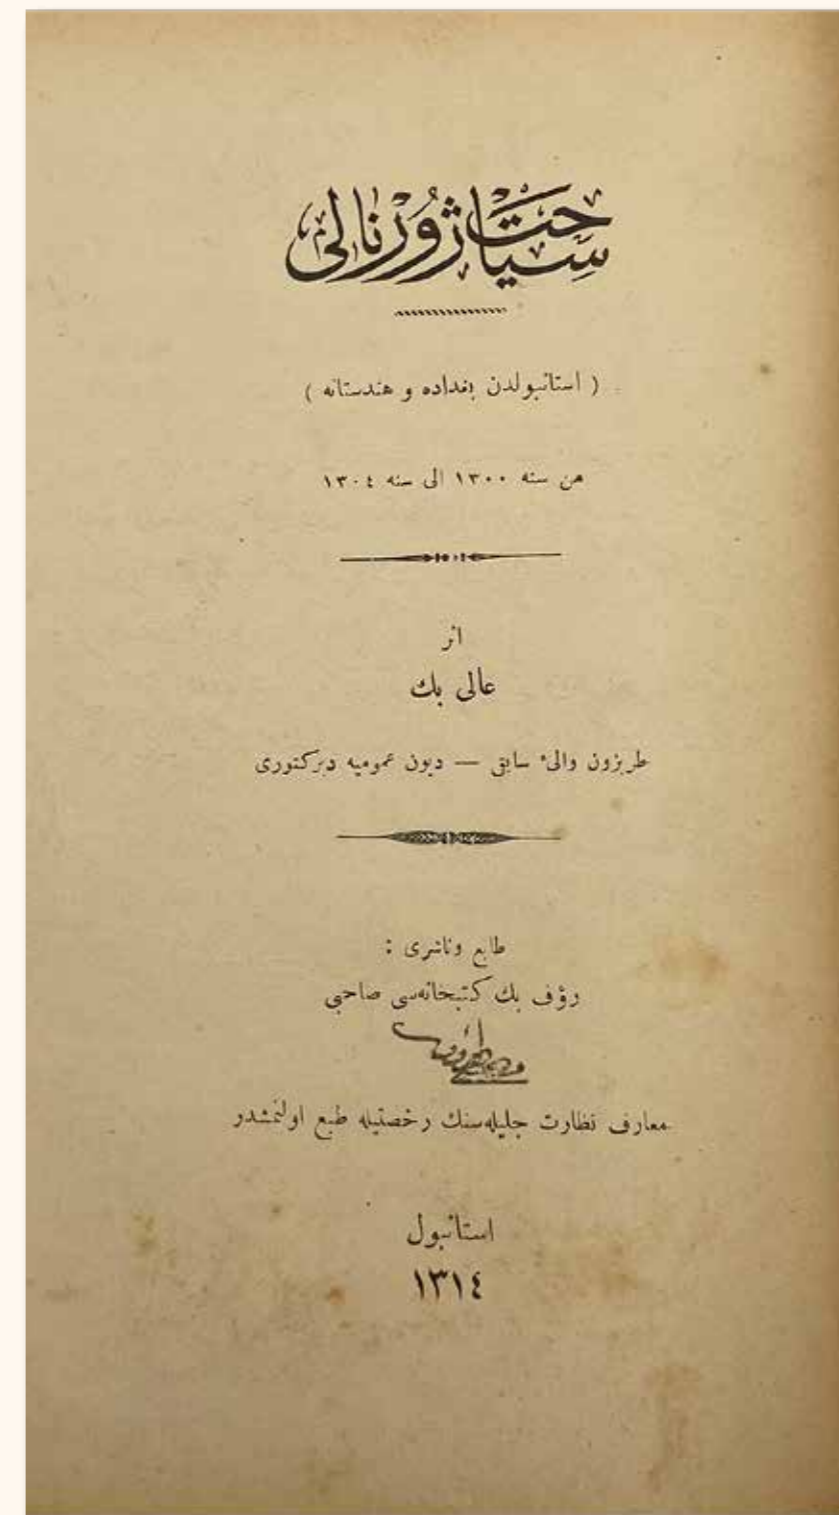 سِيَاحَتْ ژُورْنَالى
( استانبولدن بغداده و هندستانه )
من سنه ١٣٠٠ الى سنه ١٣٠٤
اثر
عالى بك
طربزون والیٔ سابقى — ديون عموميه ديركتورى
طابع وناشرى :
رؤف بك كتبخانه‌سى صاحبى
معارف نظارت جليله‌سنك رخصتيله طبع اولنمشدر
استانبول
١٣١٤